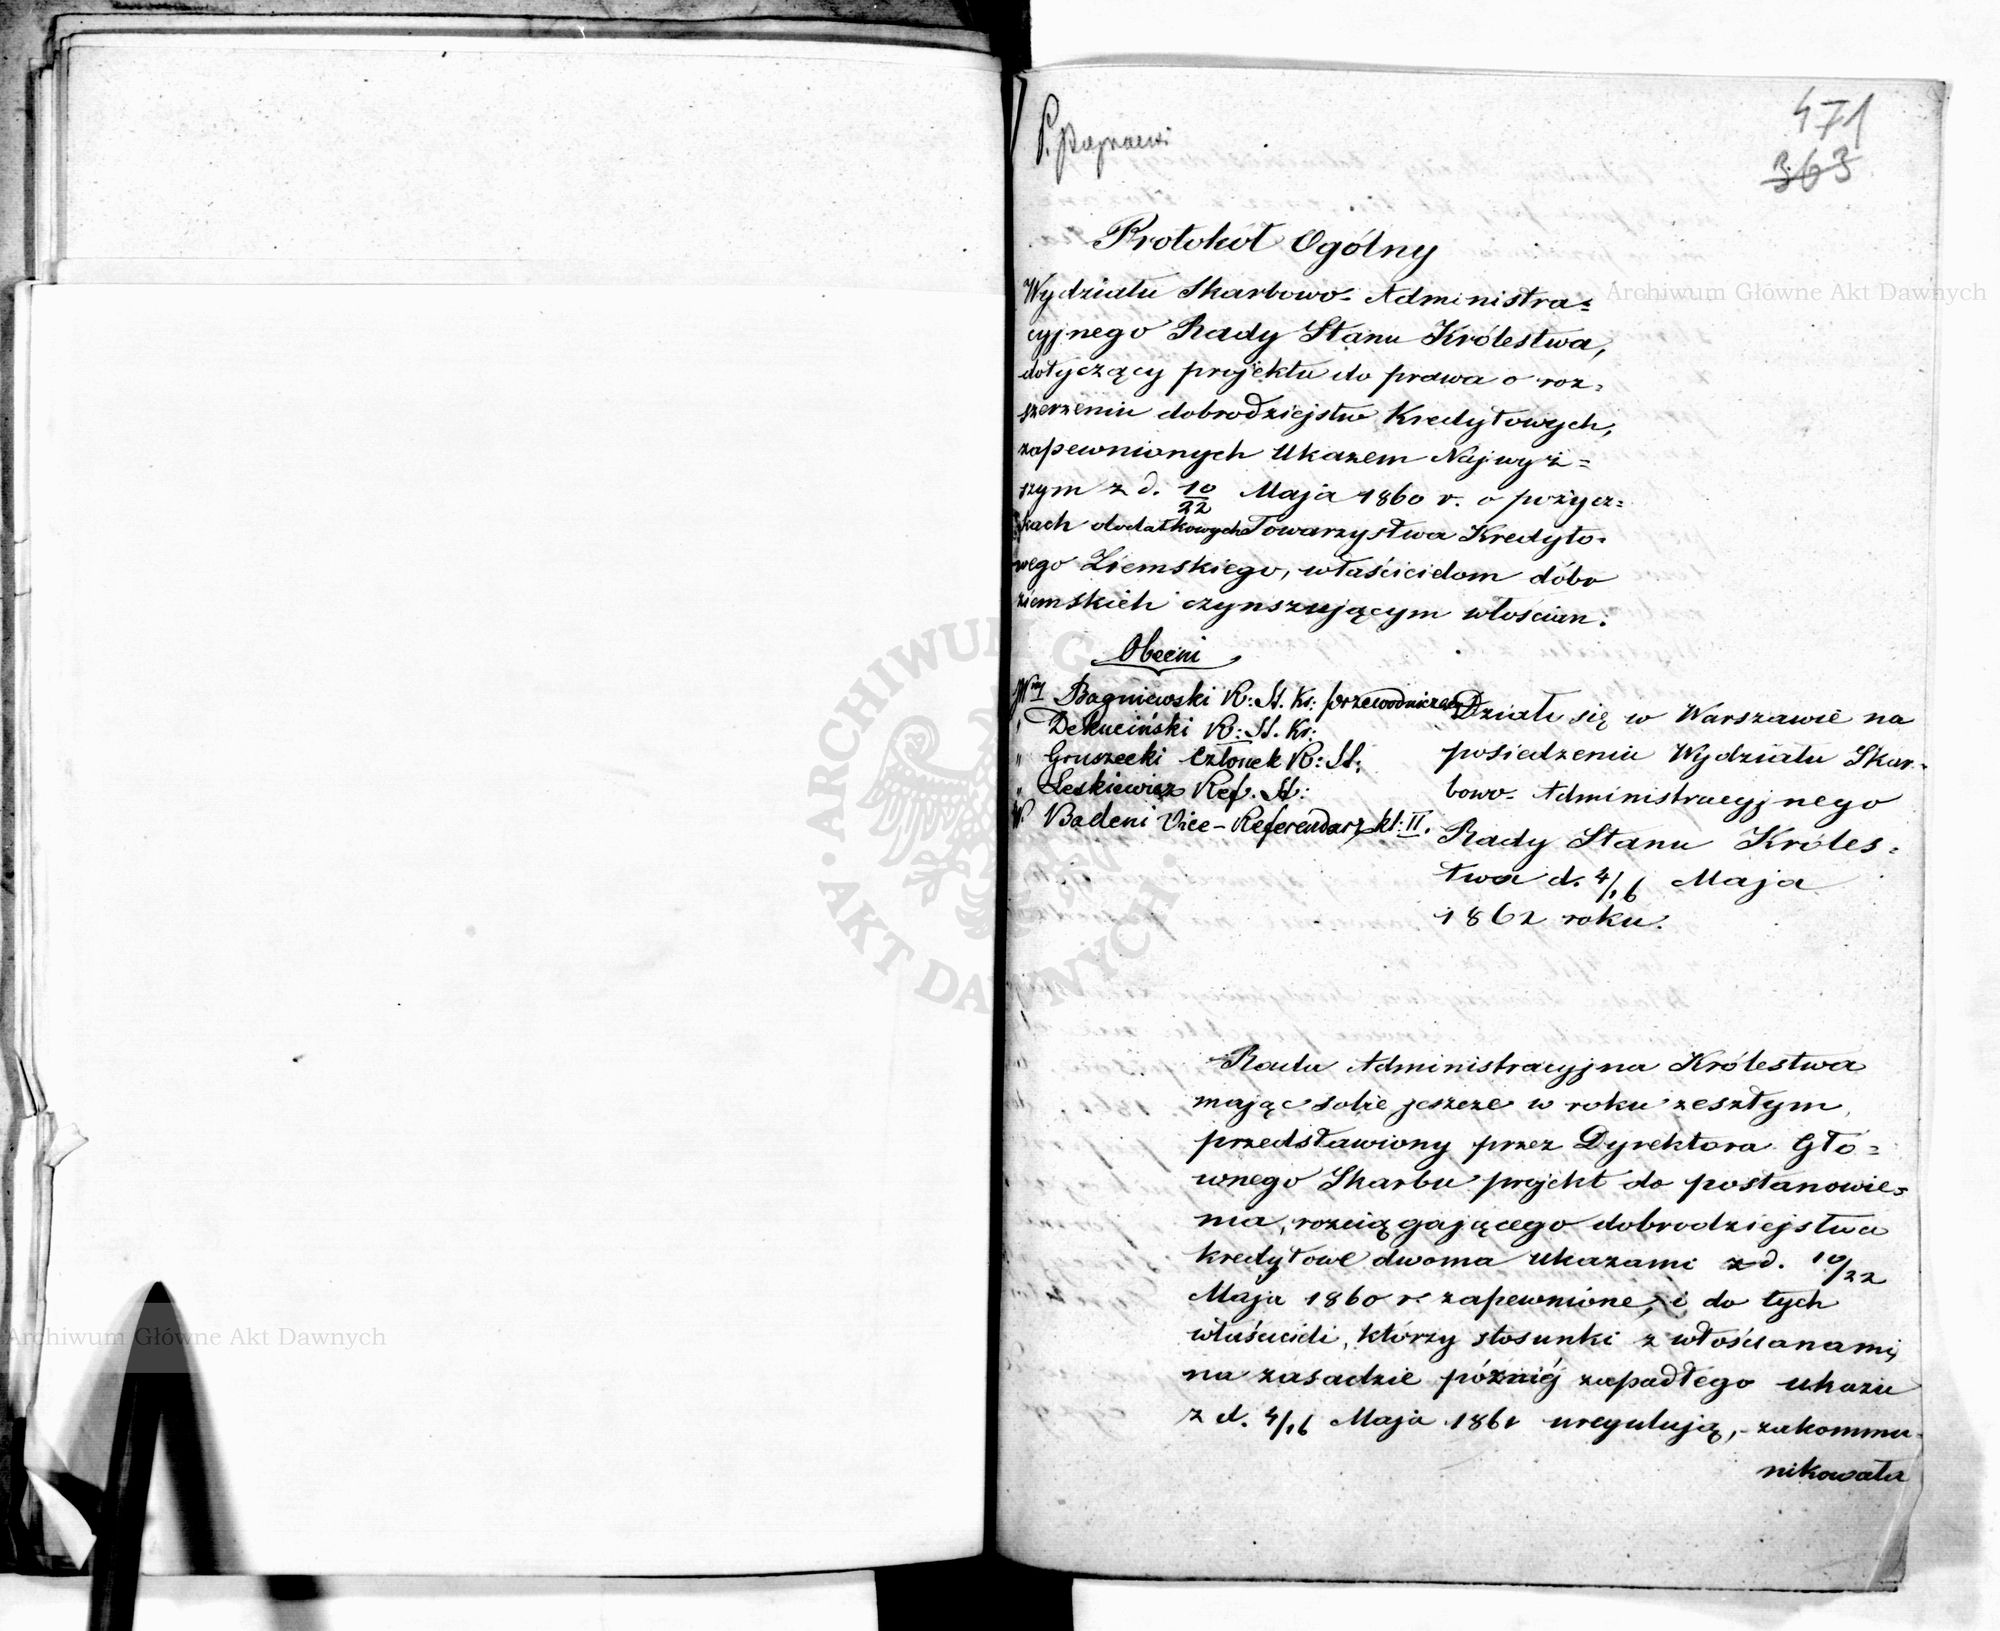 471
363
Protokół Ogólny
Wydziału Skarbowo-Administra=
cyjnego Rady Stanu Królestwa,
dotyczący projektu do prawa o roz=
szerzeniu dobrodziejstw Kredytowych,
zapewnionych Ukazem Najwyż=
szym z d. 10/22 Maja 1860 r. o pożycz=
kach dodatkowych Towarzystwa Kredyto=
wego Ziemskiego, właścicielom dóbr
ziemskich czynszującym włościan.
Obecni
JW Bagniewski R: St. Kr: przewodniczący
" Dekuciński R: St. Kr:
" Gruszecki Członek R: St:
" Leskiewicz Ref. St:
W. Badeni Vice-Referendarz kl: II.
Działo się w Warszawie na
posiedzeniu Wydziału Skar=
bowo-Administracyjnego
Rady Stanu Króles=
twa d. 4/16 Maja
1862 roku.
Rada Administracyjna Królestwa
mając sobie jeszcze w roku zeszłym
przedstawiony przez Dyrektora Głó=
wnego Skarbu projekt do postanowie=
nia, rozciągającego dobrodziejstwa
kredytowe dwoma ukazami z d. 10/22
Maja 1860 r. zapewnione, i do tych
właścicieli, którzy stosunki z włościanami,
na zasadzie późniéj zapadłego ukazu
z d. 4/16 Maja 1861 uregulują, - zakommu=
nikowała
Archiwum Główne Akt Dawnych
Archiwum Główne Akt Dawnych
ARCHIWUM G
AKT DAWNYCH